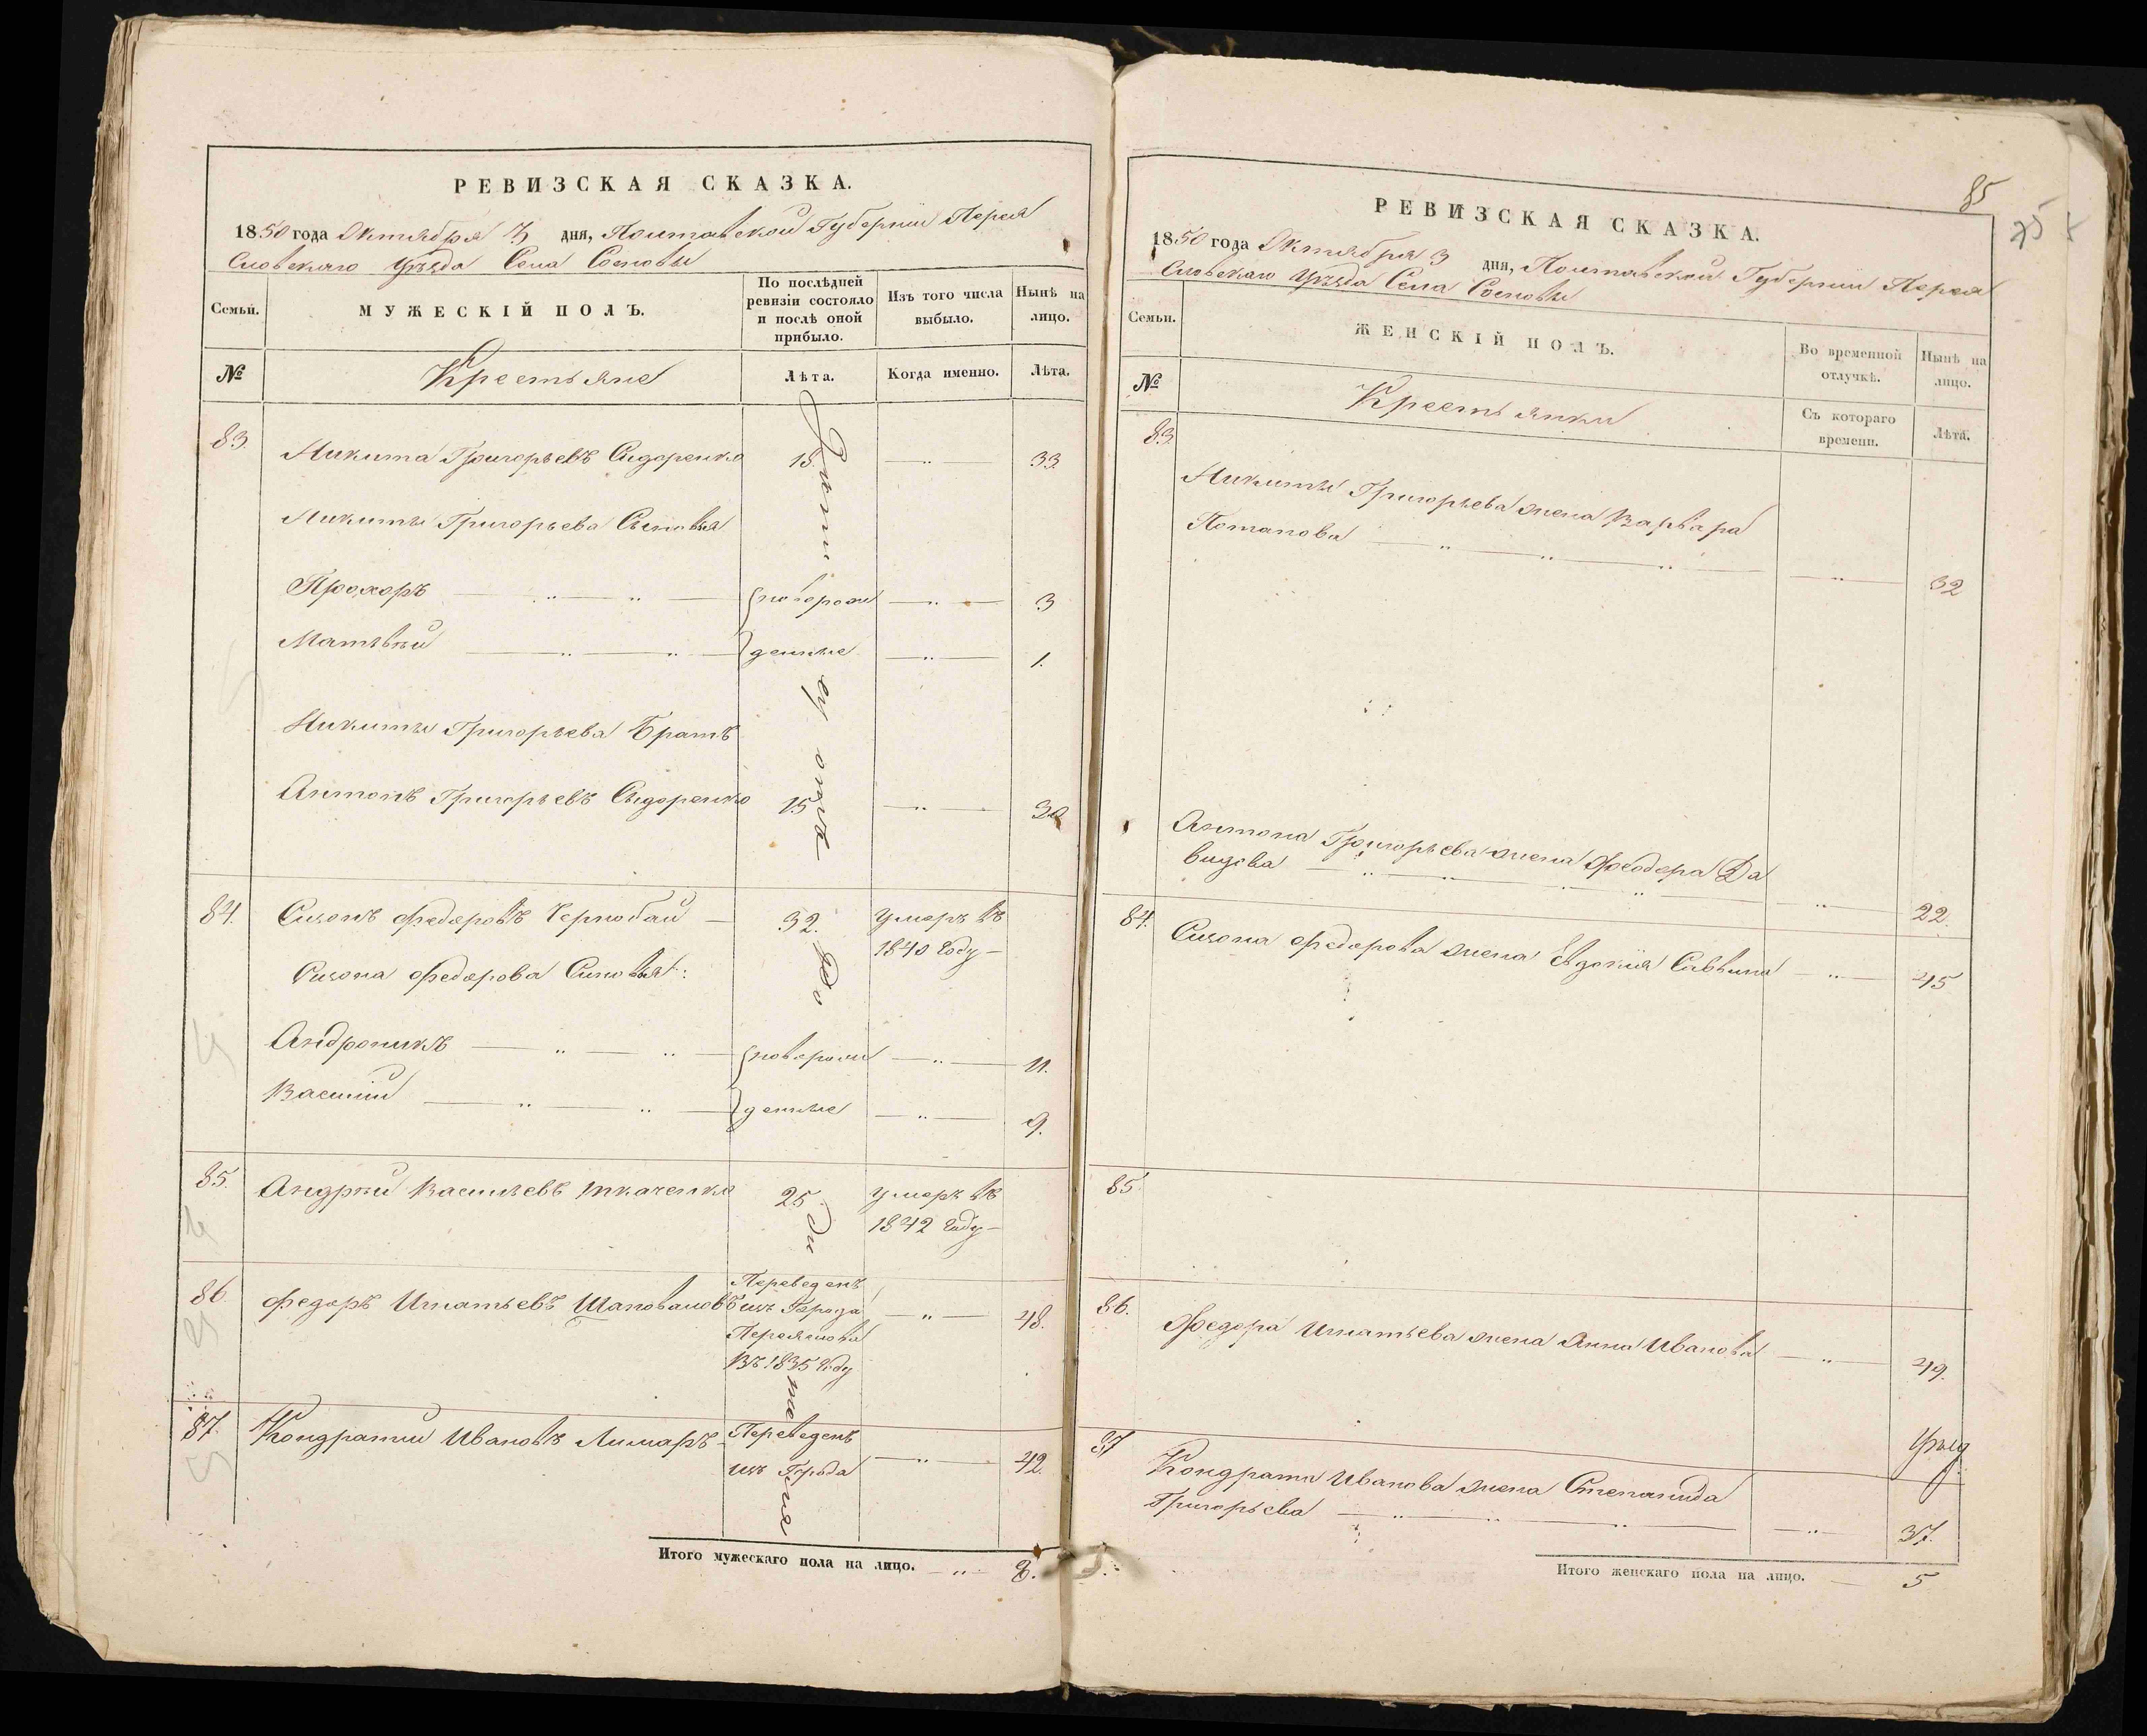 РЕВИЗСКАЯ СКАЗКА.
1850 года Октября 3 дня, Полтавской Губернии Перея
Словскаго Уѣзда Села Сосновы
Семьи.
МУЖЕСКІЙ ПОЛЪ.
По послѣдней ревизіи состояло и послѣ оной прибыло.
Изъ того числа выбыло.
Нынѣ на лицо.
№
Крестьяне
Лѣта.
Когда именно.
Лѣта.
83. Никита Григорьевъ Сидоренко 18. — „ — 33.
Никиты Григорьева Сыновья
Прохоръ — „ — „ — новорож — „ — 3
Матвѣй — „ — „ — денные — „ — 1.
Никиты Григорьева Братъ
Антонъ Григорьевъ Сидоренко 15 — „ — 30
84. Сизонъ Федоровъ Чернобай — 32. умеръ въ
1840 году —
Сизона Федорова Сыновья:
Андроникъ — „ — „ — новорож — „ — 11.
Василій — „ — „ — денные — „ — 9.
85. Андрѣй Васильевъ Ткаченко 25 умеръ въ
1842 году —
86. Федоръ Игнатьевъ Шаповаловъ Переведенъ
изъ Города — „ — 48.
Переяслова
Въ 1835 году
87. Кондратій Ивановъ Лимаръ Переведенъ — „ — 42.
изъ Города
Итого мужескаго пола на лицо. — „ — 8.
85
РЕВИЗСКАЯ СКАЗКА.
1850 года Октября 3 дня, Полтавской Губерніи Перея
Словскаго Уѣзда Села Сосновы
Семьи.
ЖЕНСКІЙ ПОЛЪ.
Во временной отлучкѣ.
Нынѣ на лицо.
№
Крестьянки
Съ котораго времени.
Лѣта.
83.
Никиты Григорьева жена Варвара
Потапова — „ — „ — „ — — „ — 32
Антона Григорьева жена Феодора Да
видова — „ — „ — „ — „ — — „ — 22.
84. Сизона Федорова жена Евдокия Саввина — „ — 45
85.
86. Федора Игнатьева жена Анна Иванова — „ — 49.
87 Кондратия Иванова жена Степанида
Григорьева — „ — „ — „ — — „ — 37.
Итого женскаго пола на лицо. — 5